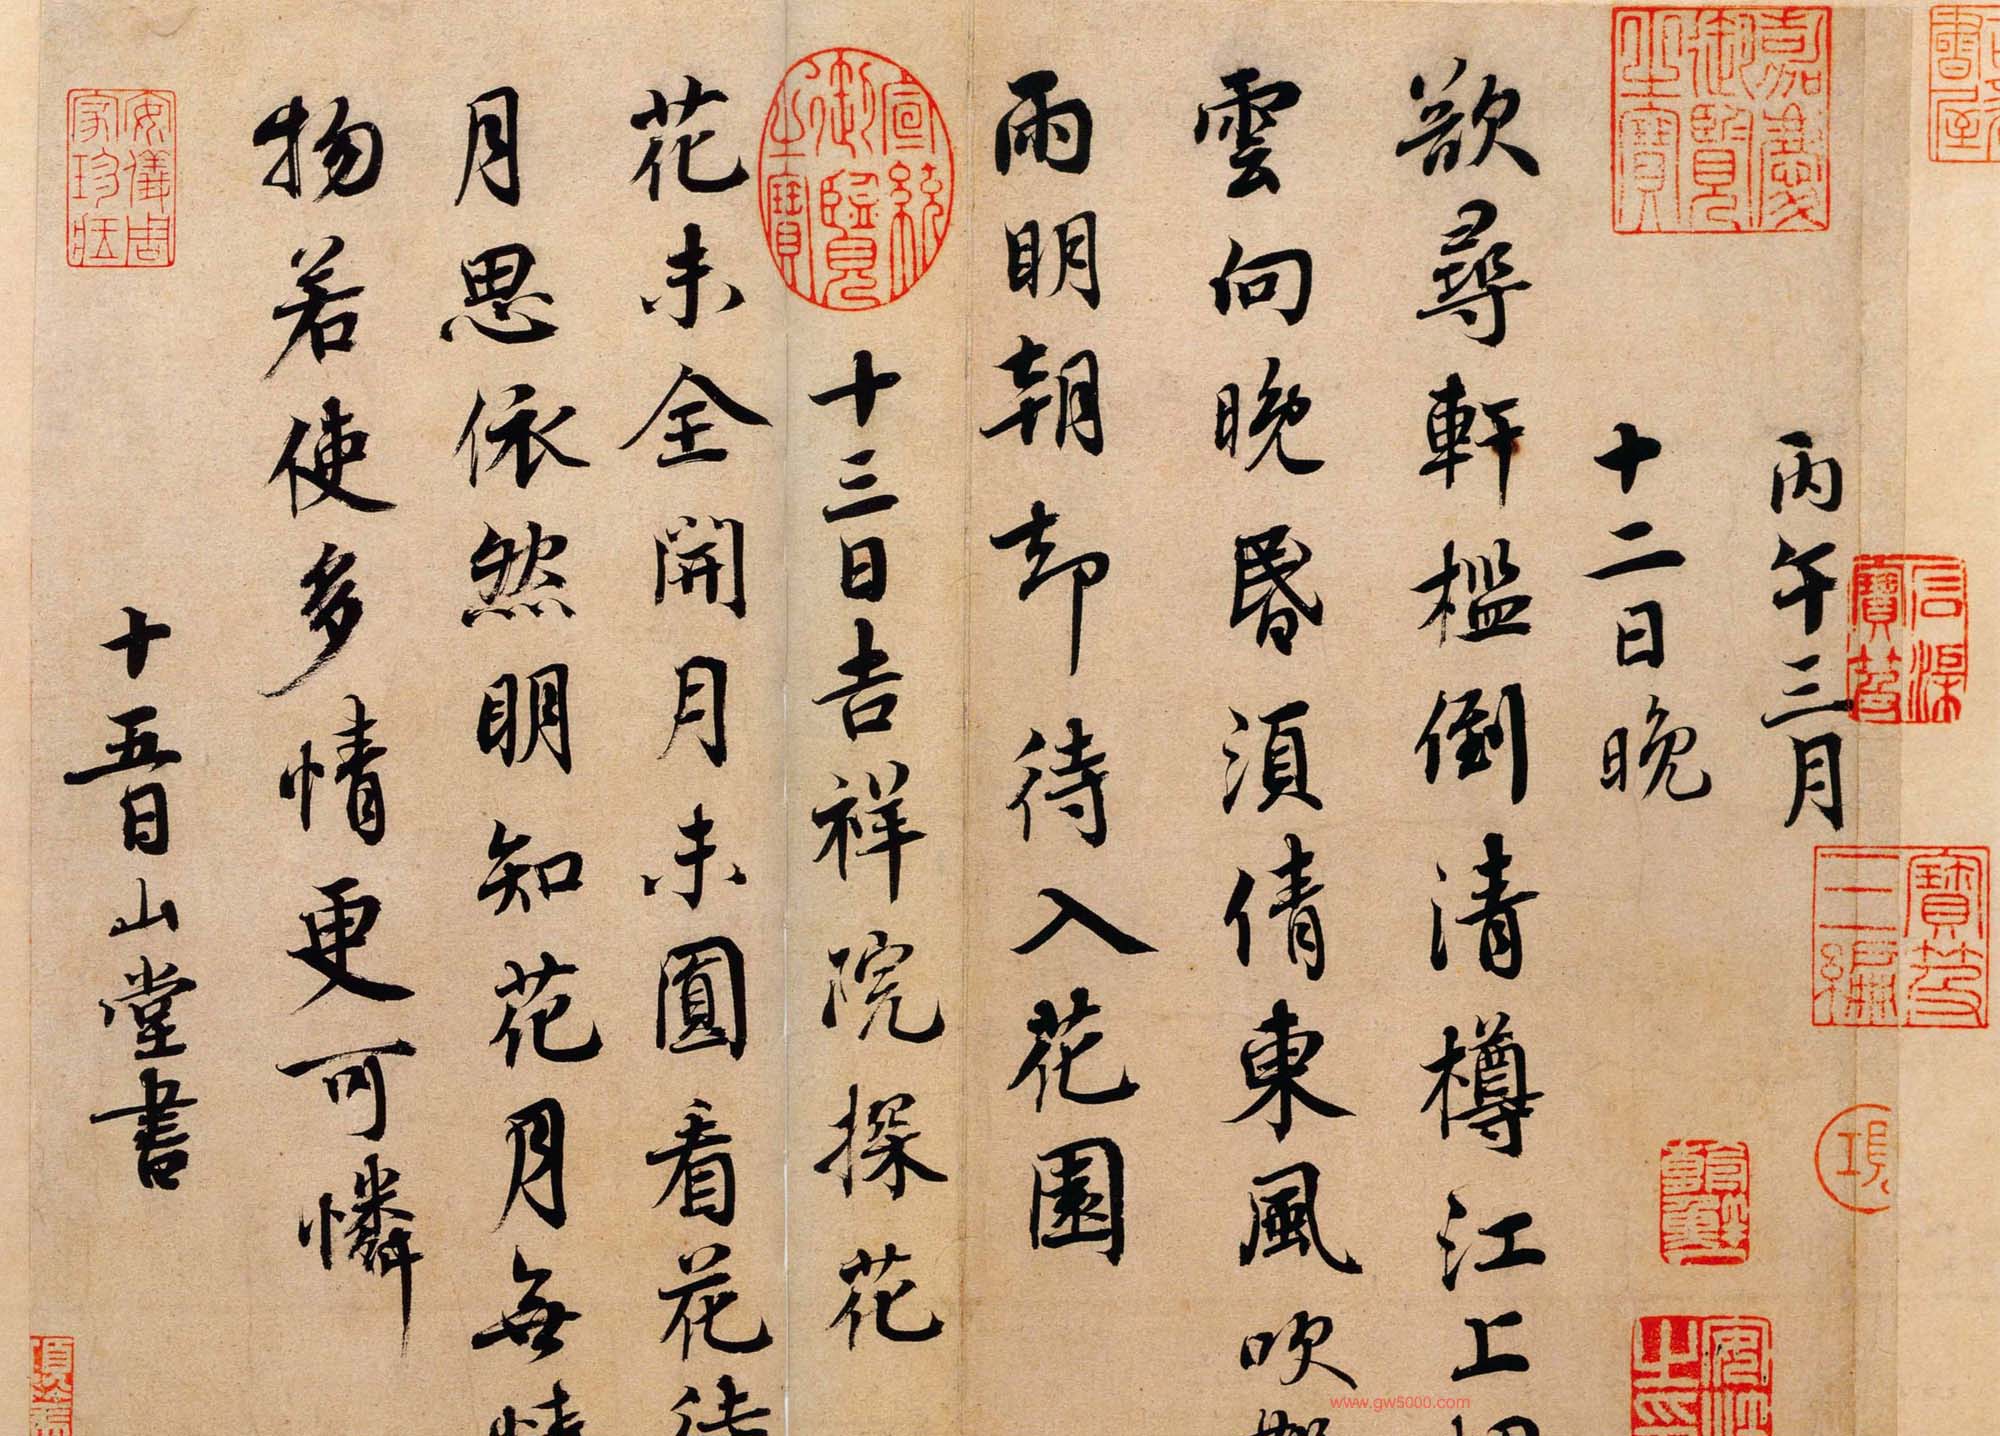 丙午三月
十二日晚
欲尋軒檻倒清樽江上
雲向晚昏須倩東風吹
雨明朝却待入花園
十三日吉祥院探花
花未全開月未圓看花待
月思依然明知花月無情
物若使多情更可憐
十五日山堂書
嘉慶御覽之寶
宣統御覽之寶
安儀周家珍藏
寶笈三編
www.gw5000.com